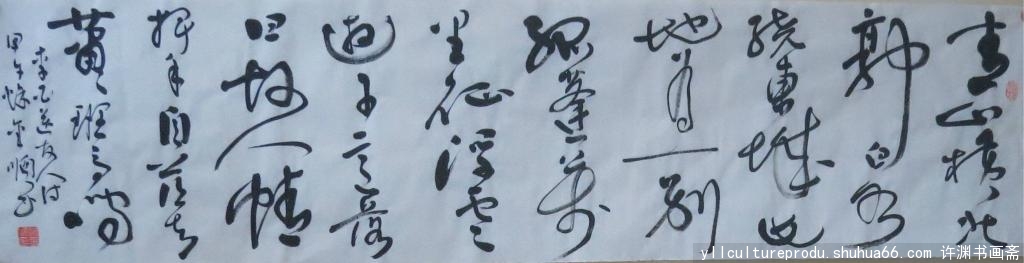 青山横北
郭白水
绕東城此
地为一别
孤蓬万
里征浮云
游子意落
日故人情
挥手自茲去
萧々班马鸣
李白送友人诗
甲午秋
yllcultureprodu.shuhua66.com 许渊书画斋